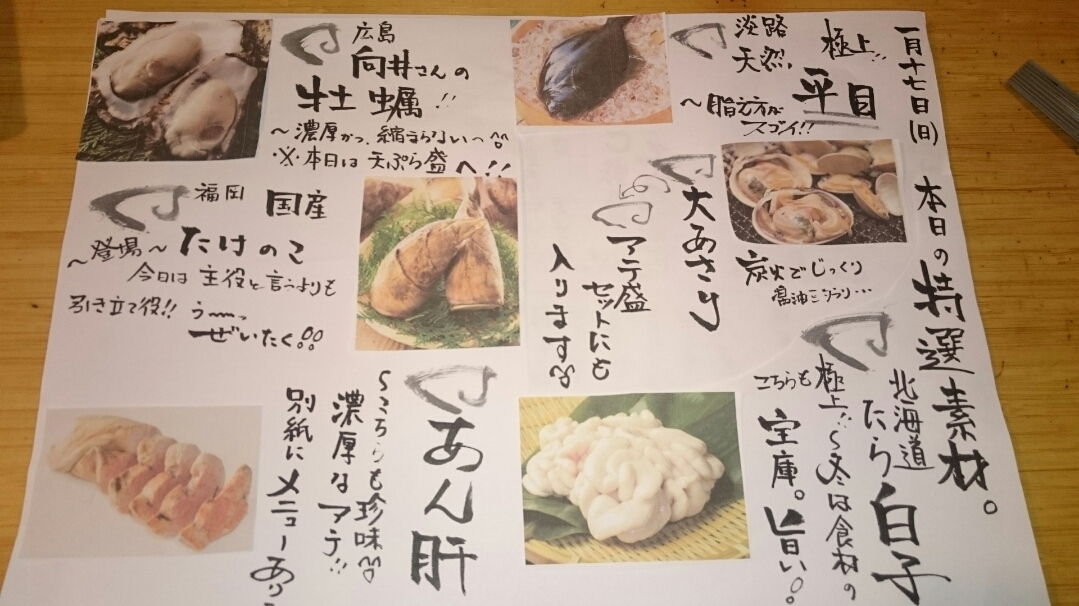 一月十七日(日)
本日の特選素材。
淡路
天然
極上!!
平目
〜脂乗方が
スゴイ!!
広島
向井さんの
牡蠣!!
〜濃厚かつ、縮まらないっ
※本日は天ぷら盛へ!!
大あさり
炭火でじっくり
醤油
アテ盛
セットにも
入ります
福岡
国産
〜登場〜たけのこ
今日は主役と言うよりも
引き立て役!!
ぜいたく
北海道
たら白子
こちらも極上!!〜冬は食材の
宝庫。旨い。
あん肝
〜こちらも珍味
濃厚なアテ!!
別紙にメニューあり